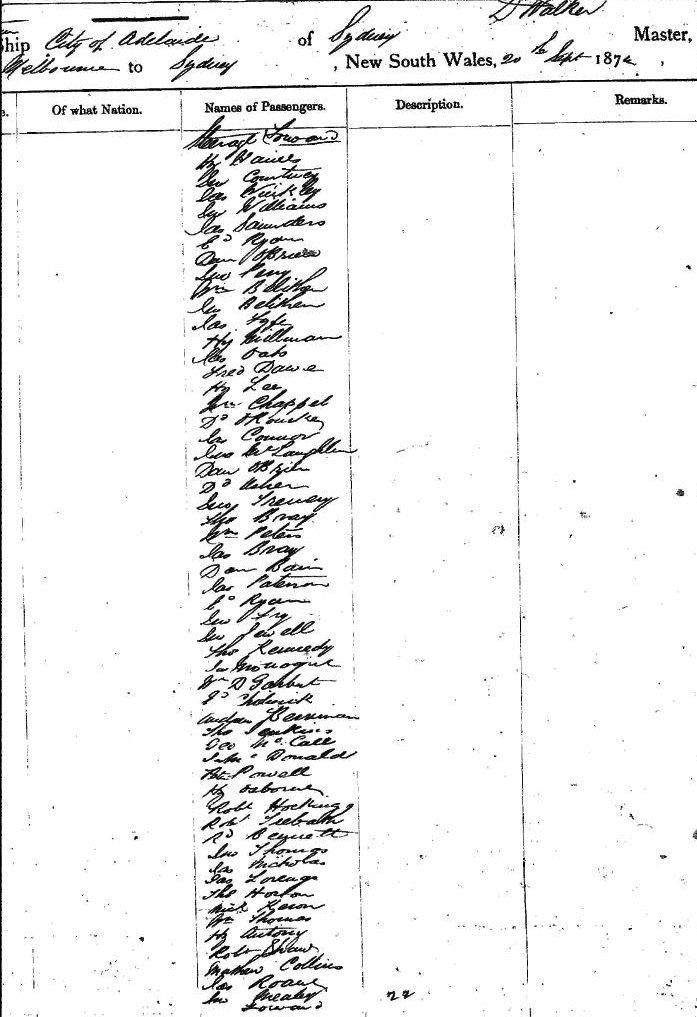 D Walker
Ship City of Adelaide of Sydney Master,
Melbourne to Sydney, New South Wales, 20th Sept 1872,
Of what Nation. Names of Passengers. Description. Remarks.
Steerage Forward
Hy
Jno Courtney
Jas
Jno Williams
Jas Saunders
Ed Ryan
Dan O'Brien
Jno Perry
Wm
Jno
Jas
Hy Millman
Jas Oats
Fred Dawe
Hy Lee
Jno Chappel
Dd O'Rourke
Jas Connor
Jno McLaughlin
Dan O'Brien
Dd Asher
Tho Bray
Wm Peters
Jas Bray
Dan Bain
Jas Paterson
Ed Ryan
Jno Fry
Jno Jewell
Tho Kennedy
Jno
Wm D
Andrew Berriman
Tho Jenkins
Geo McCall
Jno McDonald
Peter Powell
Hy Osborne
Robt Hocking
Robt
Rd Bennett
Jno Thomas
Jas Nicholas
Jas
Tho Horton
Mick
Wm Thomas
Hy Antony
Robt Shaw
Mathew Collins
Jas Roane
Jno Mealey
Forward
22